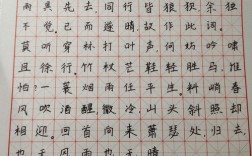 雨具先去，同行皆狼狈，余独
不觉。已而遂晴，故作此词。
莫听穿林打叶声，何妨吟啸
且徐行。竹杖芒鞋轻胜马，谁
怕？一蓑烟雨任平生。料峭春
风吹酒醒，微冷，山头斜照却
相迎。回首向来萧瑟处，归去，
也无风雨也无晴